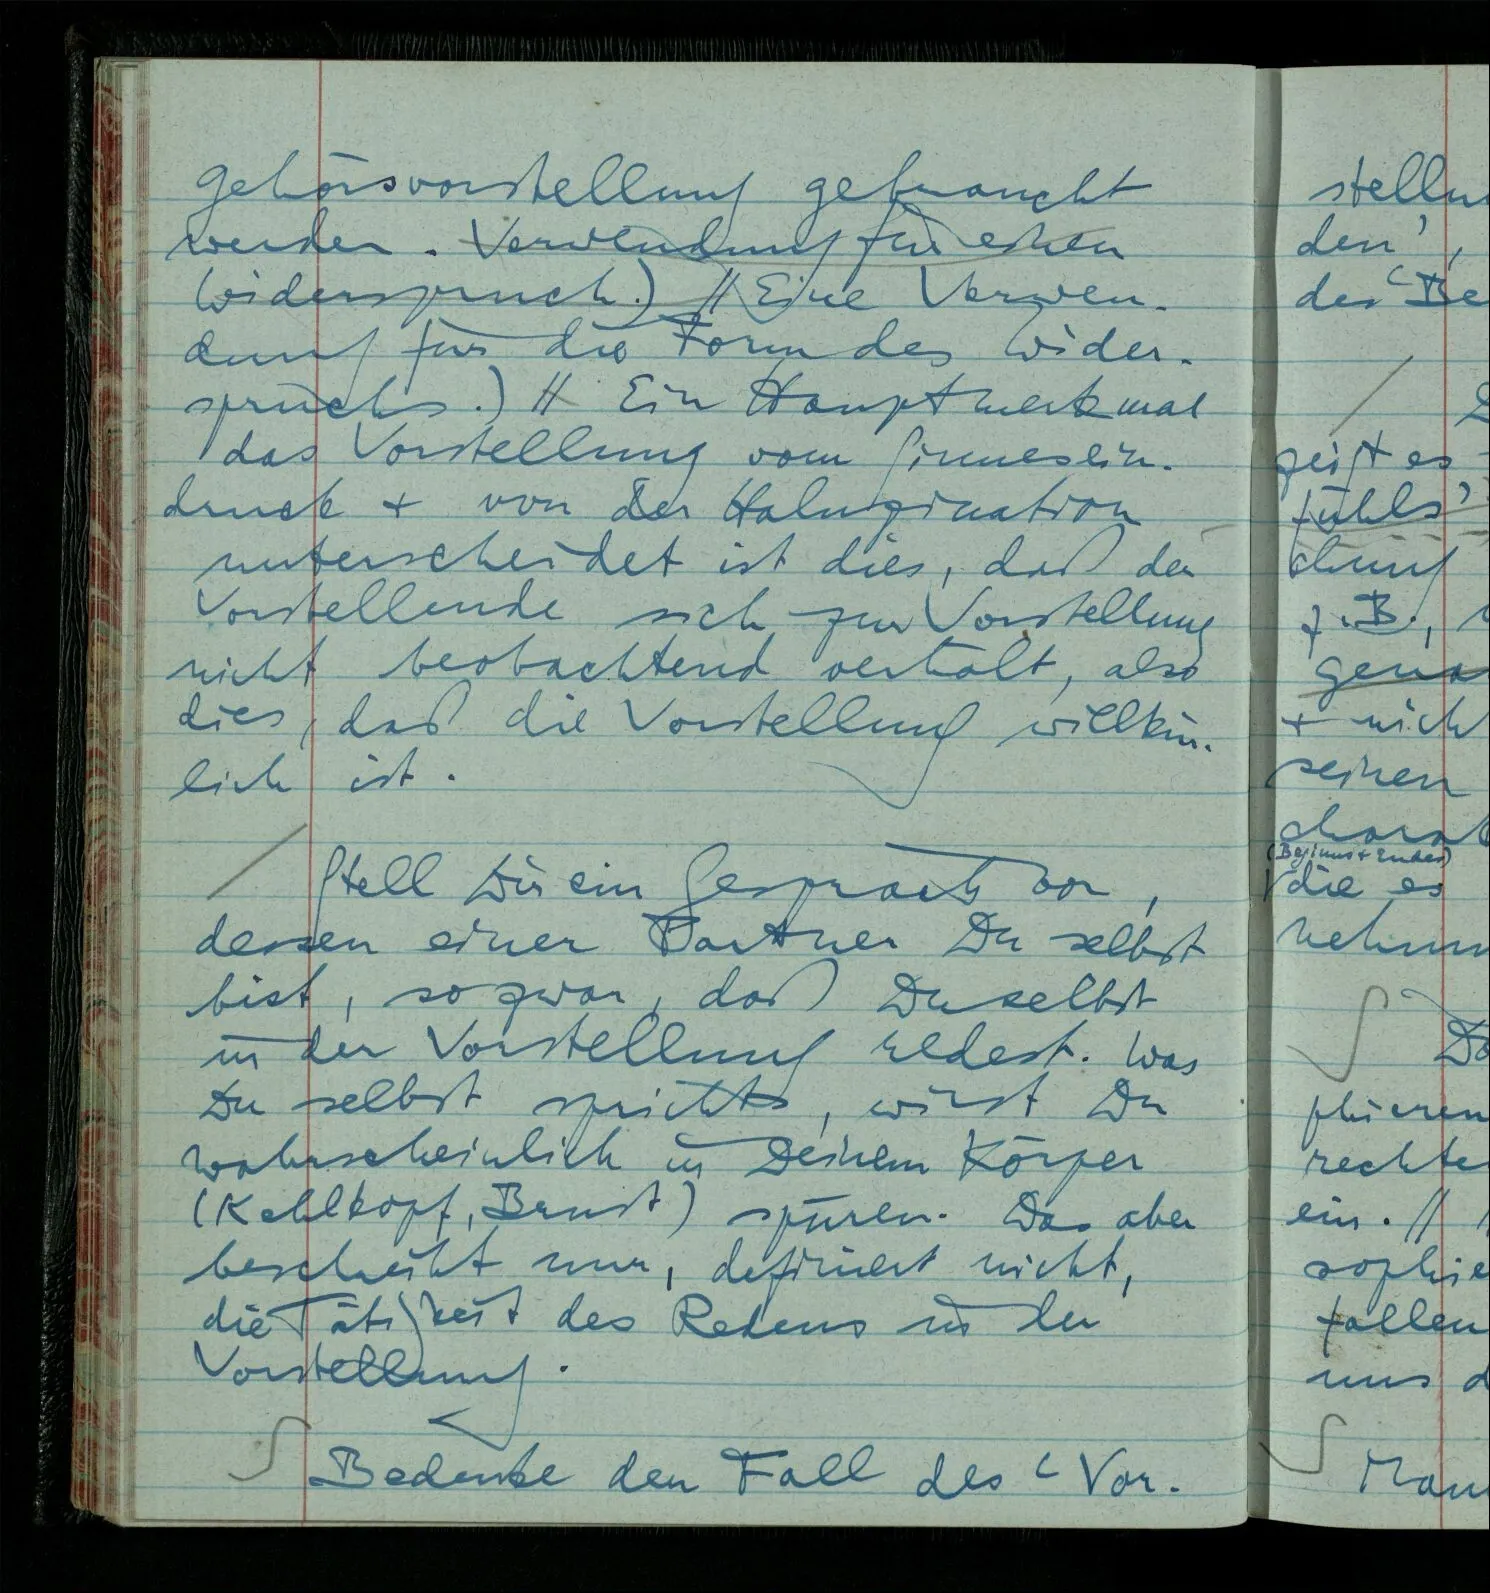 Gehörsvorstellung gebraucht
werden. Verwendung für einen
Widerspruch.) // Eine Verwen-
dung für die Form des Wider-
spruchs.) // Ein Hauptmerkmal
das Vorstellung vom Sinnesein-
druck + von der Haluzination
unterscheidet ist dies, daß der
Vorstellende sich zur Vorstellung
nicht beobachtend verhält, also
dies, daß die Vorstellung willkür-
lich ist.
/ Stell Dir ein Gespräch vor,
dessen einer Partner Du selbst
bist, so zwar, daß Du selbst
in der Vorstellung redest. Was
Du selbst sprichst, wirst Du
wahrscheinlich in Deinem Körper
(Kehlkopf, Brust) spüren. Das aber
beschreibt nur, definiert nicht,
die Tätigkeit des Redens in der
Vorstellung.
∫ Bedenke den Fall des ‘Vor-
stellu
den’,
des ‘Be
/
zeigt es
fühls’
chung
z.B.,
gena
+ nich
seinen
charak
(Beginns + Endes)
die es
nehm
∫ Da
phieren
rechte
ein. //
sophie
fallen
uns d
∫ Man